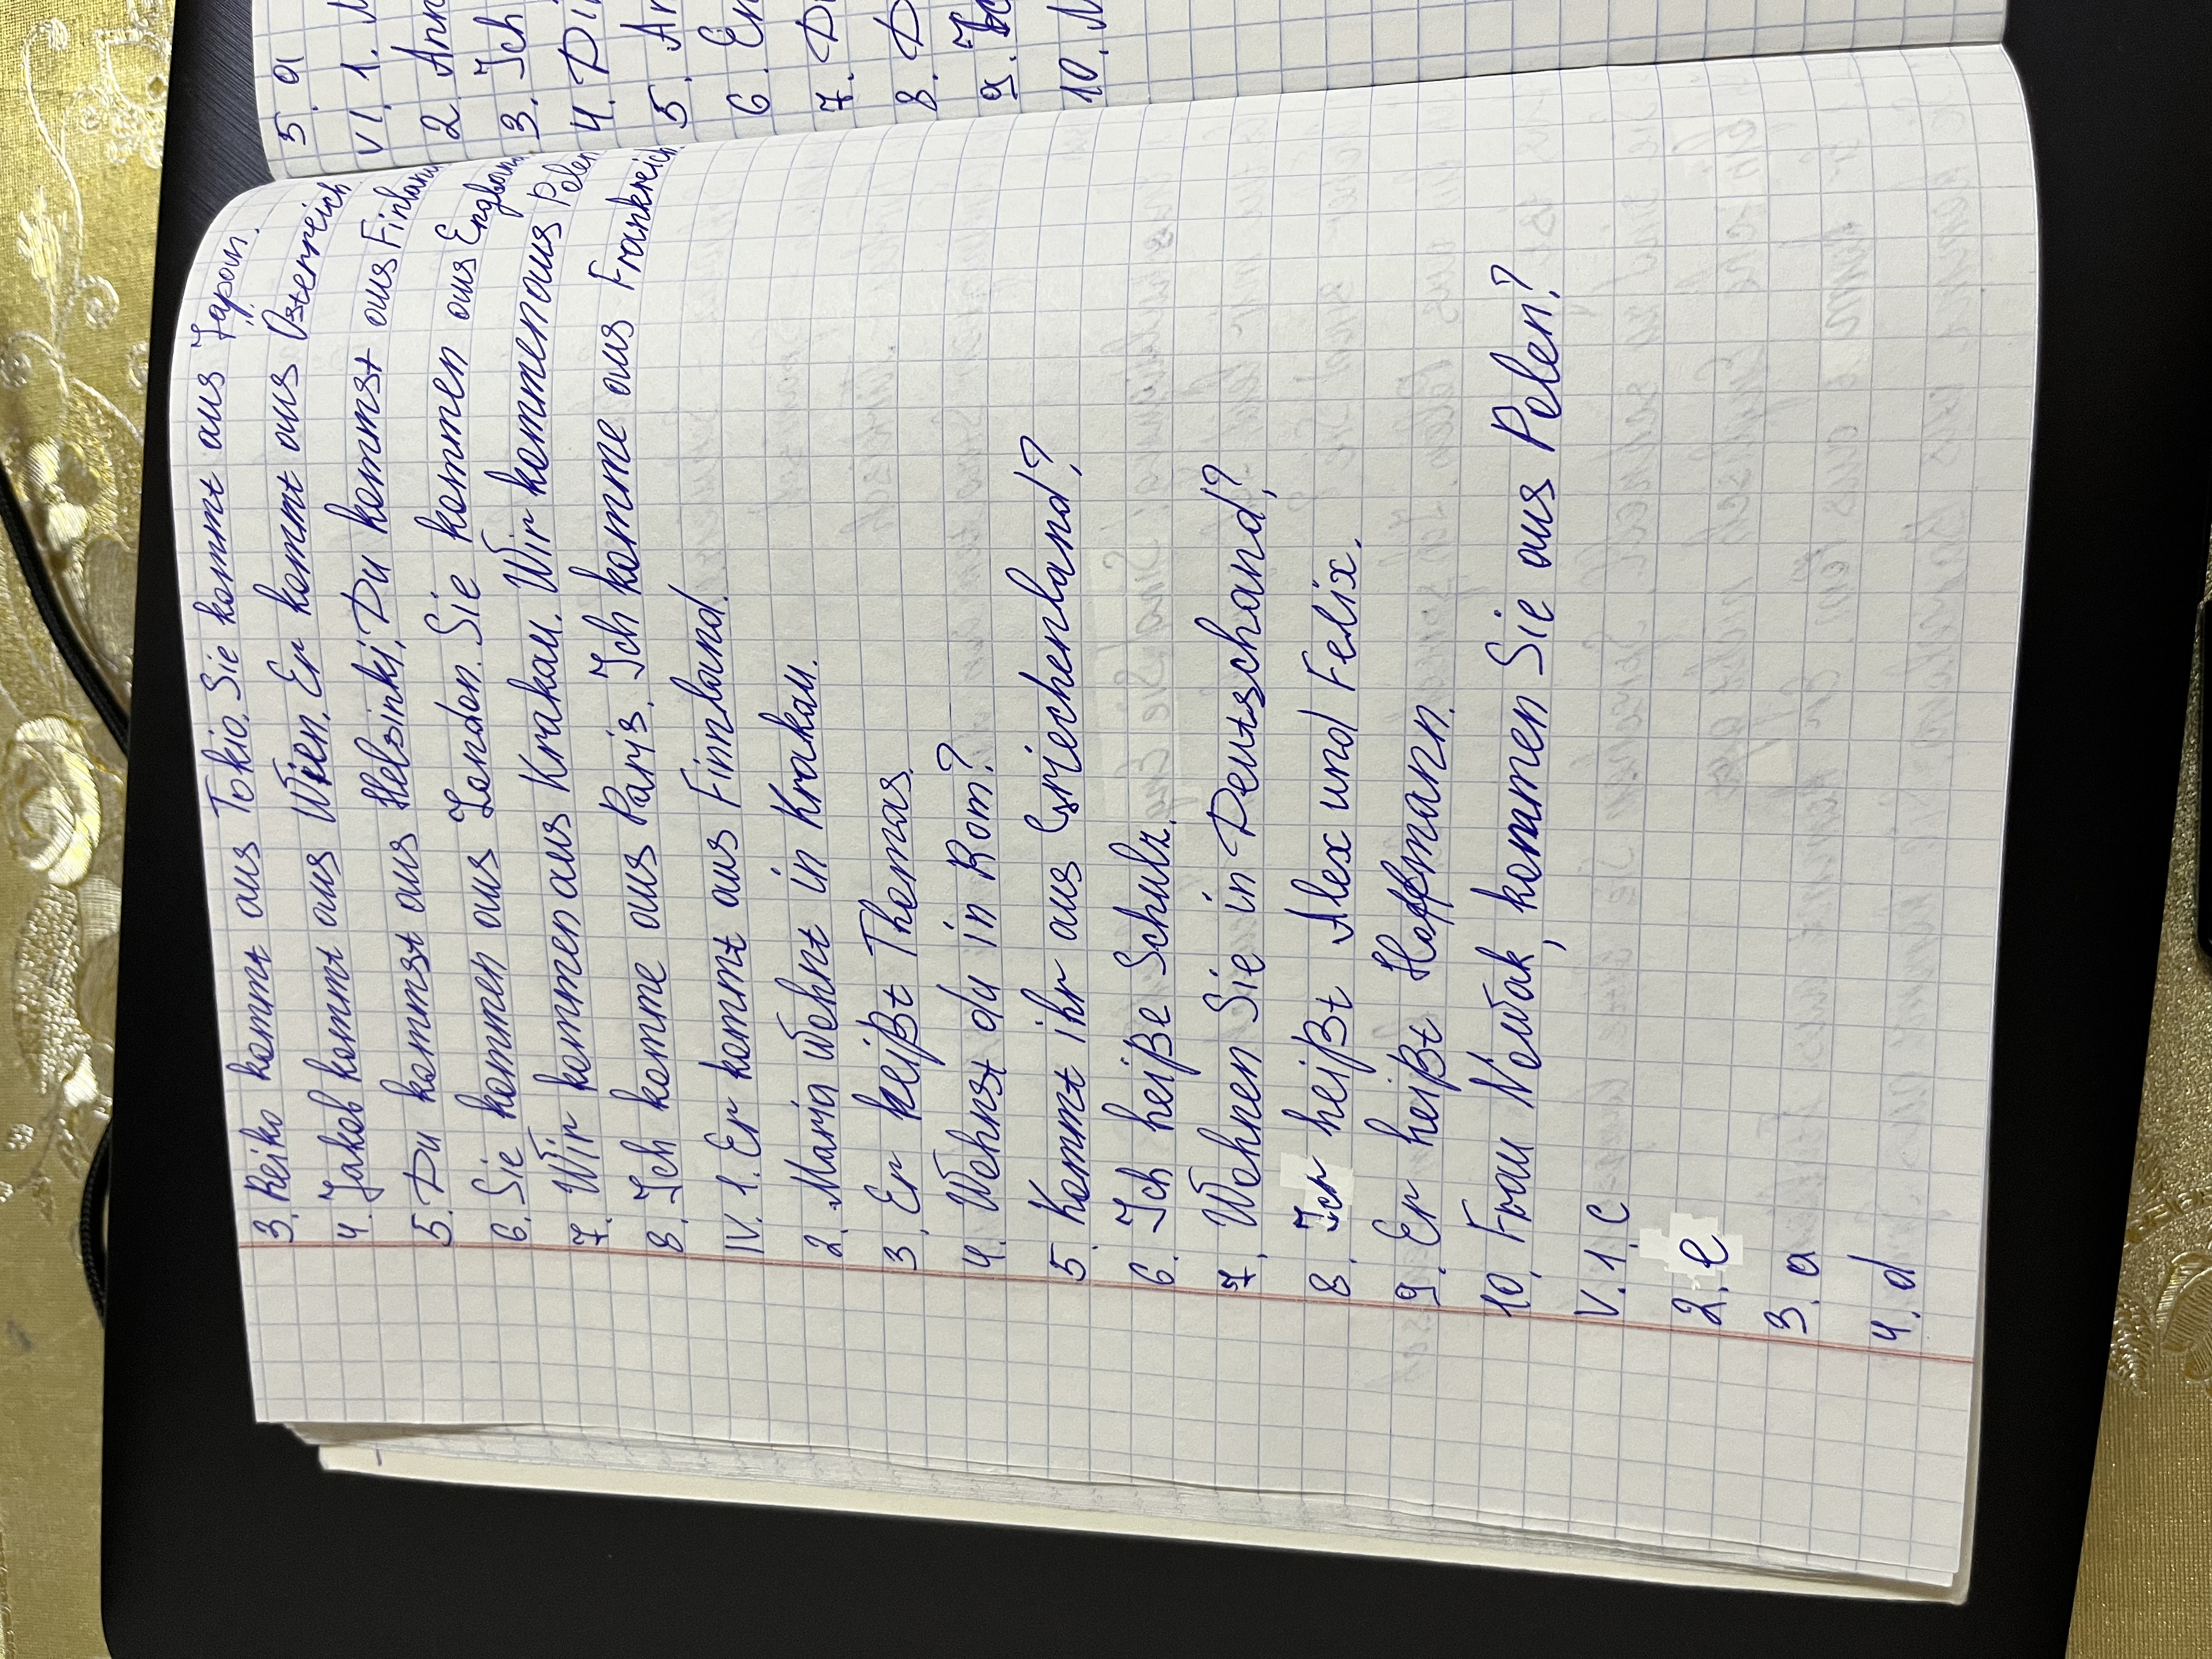 3. Reiko kommt aus Tokio. Sie kommt aus Japan.
4. Jakob kommt aus Wien. Er kommt aus Österreich
5. Du kommst aus Helsinki. Du kommst aus Finland
6. Sie kommen aus London. Sie kommen aus England
7. Wir kommen aus Krakau. Wir kommen aus Polen
8. Ich komme aus Paris. Ich komme aus Frankreich.
IV. 1. Er kommt aus Finnland.
2. Maria wohnt in Krakau.
3. Er heißt Thomas.
4. Wohnst du in Rom?
5. Kommt ihr aus Griechenland?
6. Ich heiße Schulz.
7. Wohnen Sie in Deutschand?
8. Ihr heißt Alex und Felix.
9. Er heißt Hoffmann.
10. Frau Nowak, kommen Sie aus Polen?
V. 1. c
2. e
3. a
4. d
5. a
VI. 1.
2 Ann
3. Ich
4. Di
5. An
6. Er
7. D
8. D
9.
10.